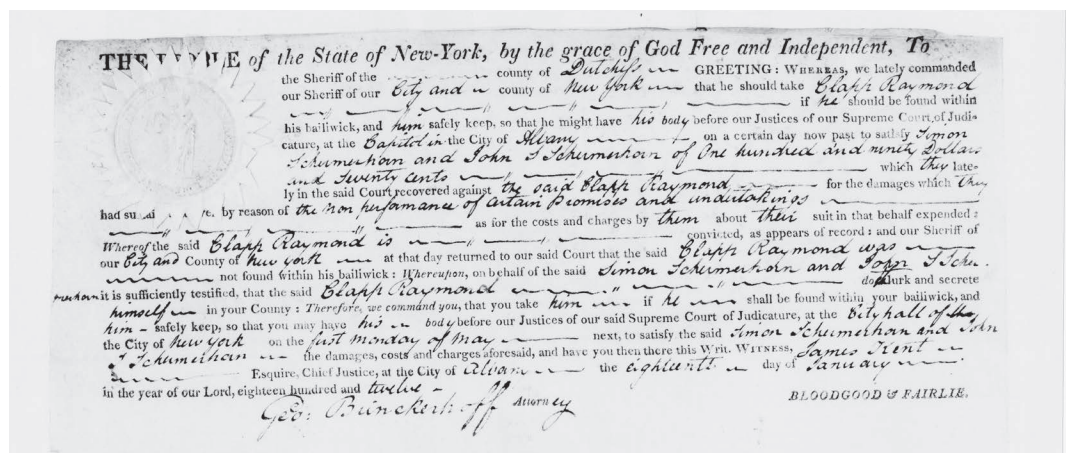 THE PEOPLE of the State of New-York, by the grace of God Free and Independent, To
the Sheriff of the county of Dutchess GREETING: WHEREAS, we lately commanded
our Sheriff of our City and county of New York that he should take Clapp Raymond
if he should be found within
his bailiwick, and him safely keep, so that he might have his body before our Justices of our Supreme Court of Judi-
cature, at the Capitol in the City of Albany on a certain day now past to satisfy Simon
Schermerhorn and John S Schermerhorn of One hundred and ninety Dollars
and Seventy cents which they late-
ly in the said Court recovered against the said Clapp Raymond for the damages which they
had by reason of the non performance of certain promises and undertakings
as for the costs and charges by them about their suit in that behalf expended:
Whereof the said Clapp Raymond is convicted, as appears of record: and our Sheriff of
our City and County of New York at that day returned to our said Court that the said Clapp Raymond was
not found within his bailiwick: Whereupon, on behalf of the said Simon Schermerhorn and John S Scher-
merhorn it is sufficiently testified, that the said Clapp Raymond doth lurk and secrete
himself in your County: Therefore, we command you, that you take him if he shall be found within your bailiwick, and
him safely keep, so that you may have his body before our Justices of our said Supreme Court of Judicature, at the City hall of the
the City of New York on the first Monday of May next, to satisfy the said Simon Schermerhorn and John
S Schermerhorn the damages, costs and charges aforesaid, and have you then there this Writ. WITNESS, James Kent
Esquire, Chief Justice, at the City of Albany the eighteenth day of January
in the year of our Lord, eighteen hundred and twelve
Geo: Brinckerhoff Attorney
BLOODGOOD & FAIRLIE.